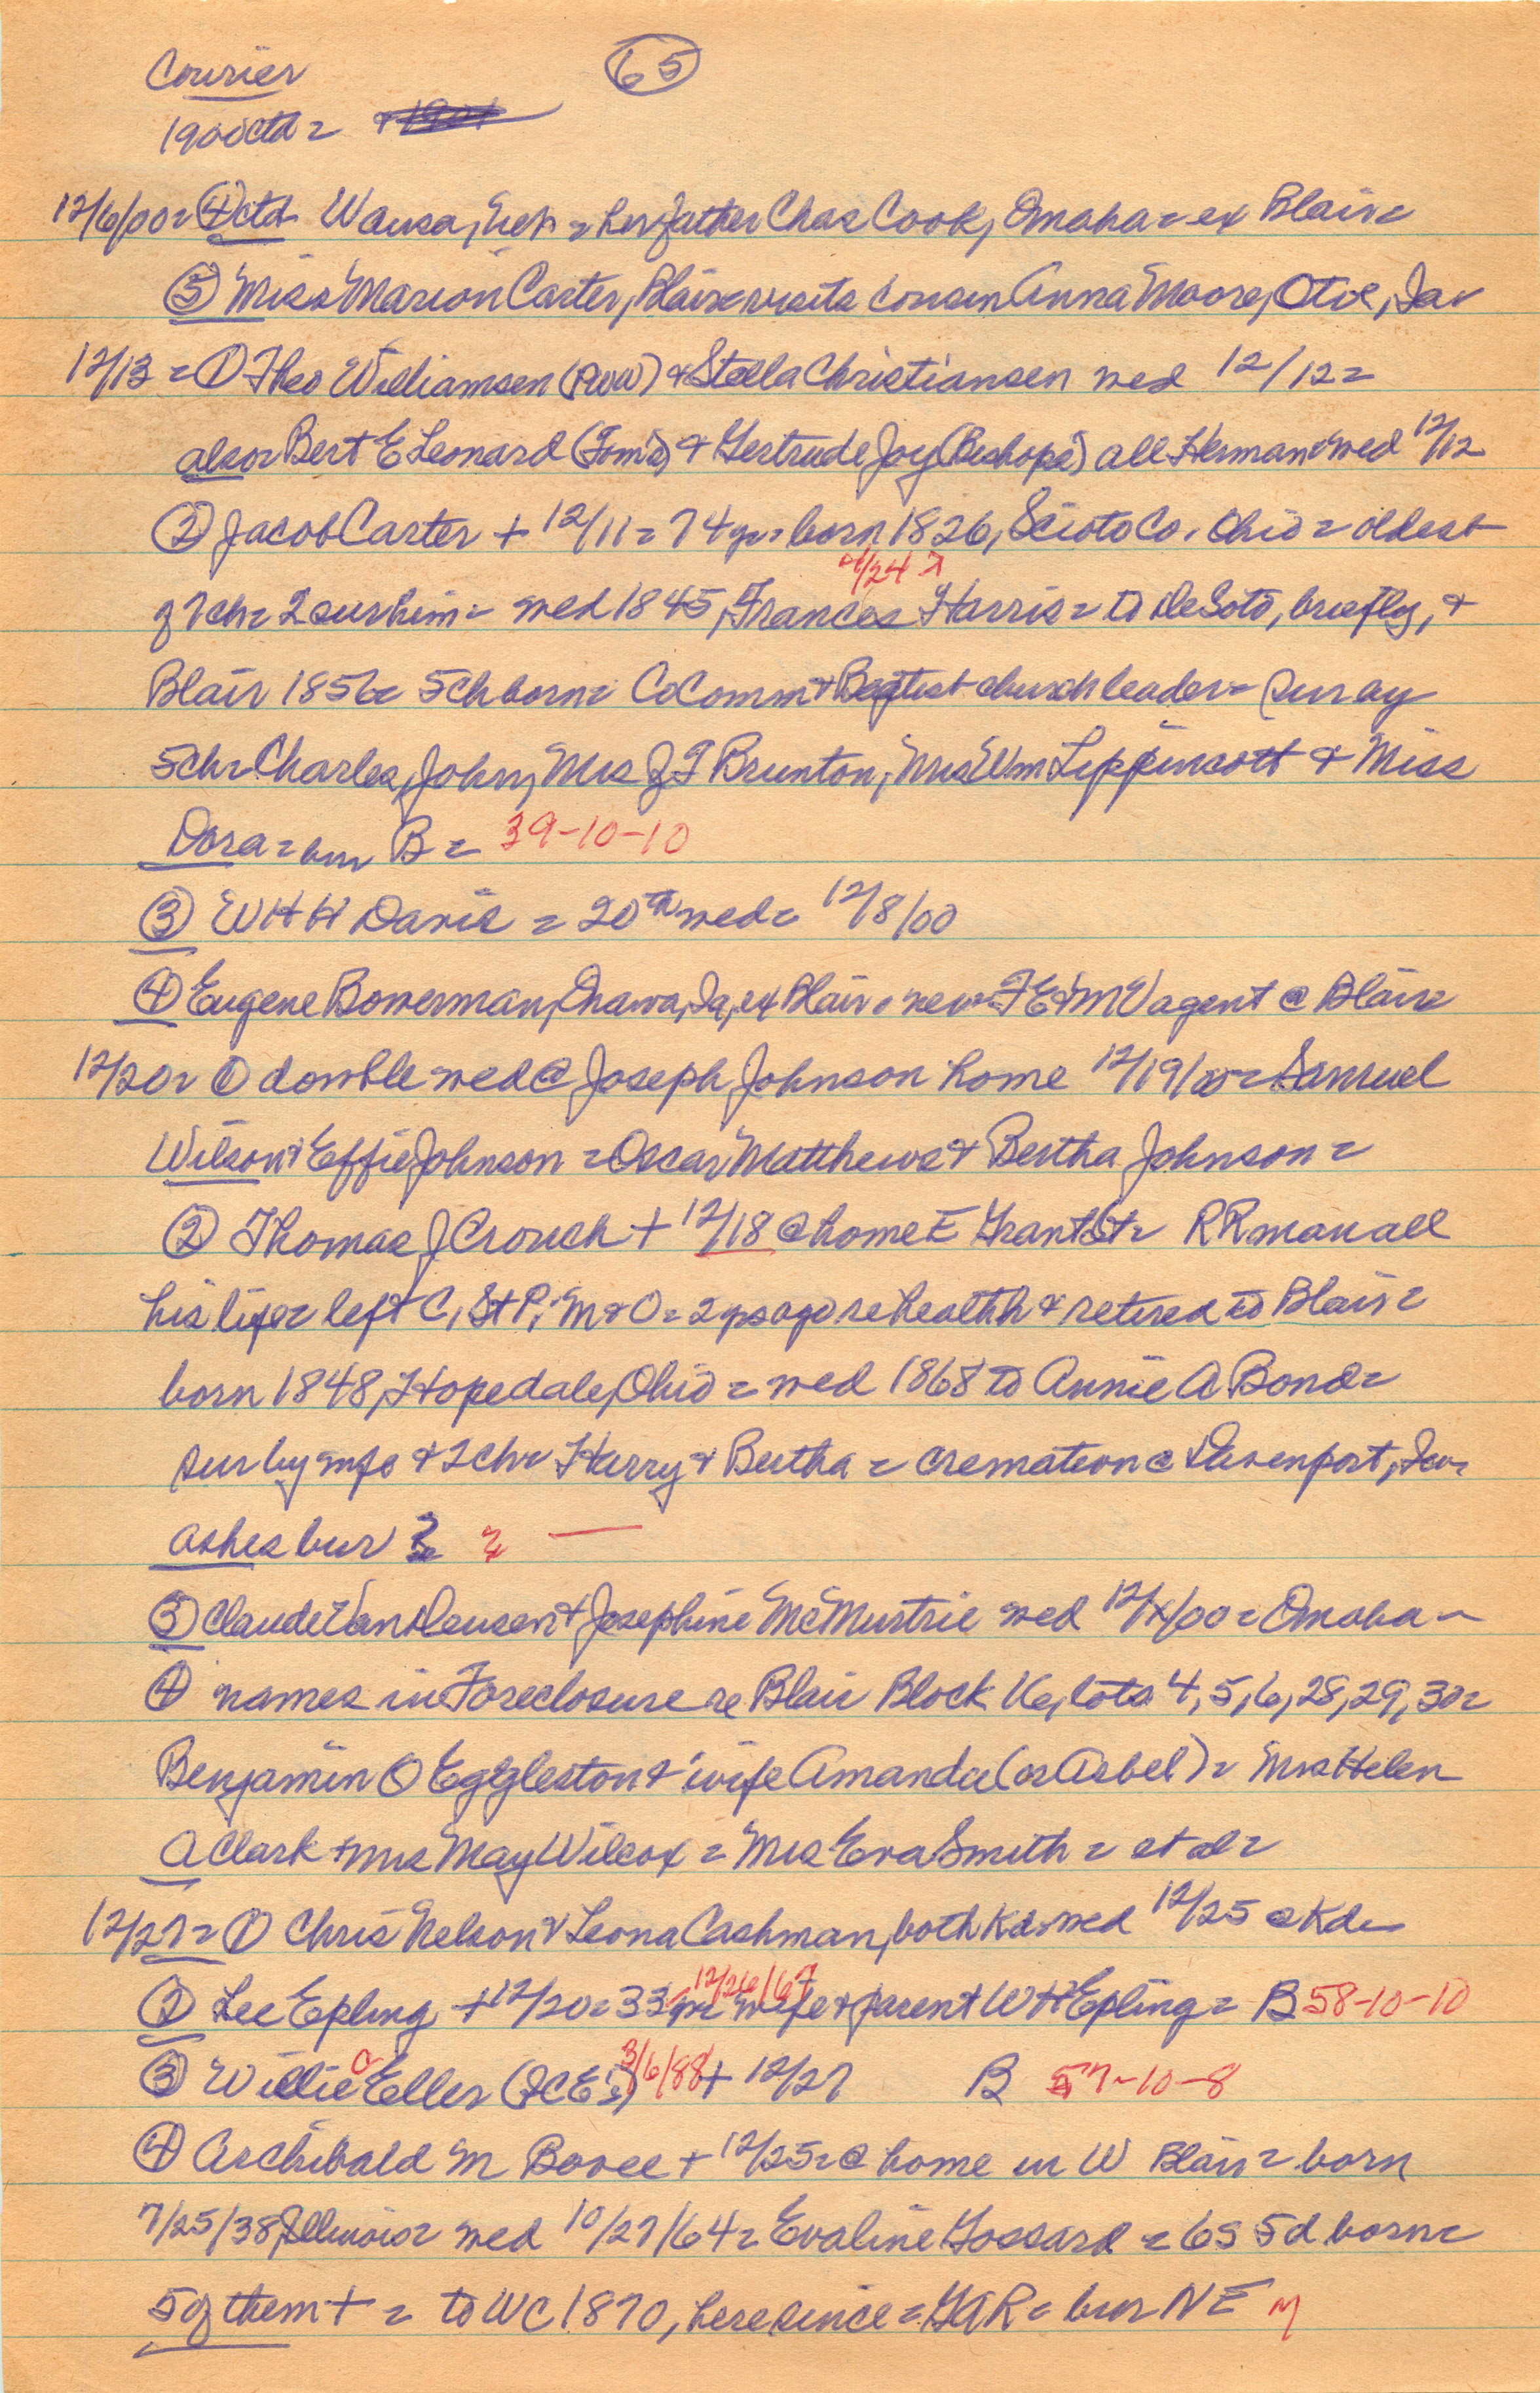 Courier (65)
1900ctd =
12/6/00 = (4)ctd Wausa, Neb = her father Chas Cook, Omaha = ex Blair =
(5) Miss Marion Carter, Blair = visits cousin Anna Moore, Otoe, Ia =
12/13 = (1) Theo Williamsen (PWW) & Stella Christiansen wed 12/12 =
also = Bert E Leonard (Tom's) & Gertrude Joy (Bishops) all Herman = wed 12/12
(2) Jacob Carter + 12/11 = 74y = born 1826, Scioto Co. Ohio = oldest
4/24
of 7ch = 2 sur him = wed 1845, Frances Harris = to DeSoto, briefly, &
Blair 1856 = 5ch born = CoComm & Baptist church leader = sur by
5ch = Charles, John, Mrs J T Brunton, Mrs Wm Lippincott & Miss
Dora = bur B = 39-10-10
(3) WHH Davis = 20th wed = 12/8/00
(4) Eugene Bowerman, Onawa, Ia, ex Blair = new FE&MV agent @ Blair =
12/20 = (1) double wed @ Joseph Johnson home 12/19/00 = Samuel
Wilson & Effie Johnson = Oscar Matthews & Bertha Johnson =
(2) Thomas J Crouch + 12/18 @ home E Grant St = RR man all
his life = left C, St P, M & O = 2 yrs ago re health & retired to Blair =
born 1848, Hopedale, Ohio = wed 1868 to Annie A Bond =
sur by wife & 2ch = Harry & Bertha = cremation @ Davenport, Ia =
ashes bur ? ? —
(3) Claude Van Deusen & Josephine McMurtrie wed 12/x/00 = Omaha =
(4) names in Foreclosure re Blair Block 16, lots 4, 5, 6, 28, 29, 30 =
Benjamin O Eggleston & wife Amanda (or Asbel) = Mrs Helen
A Clark & Mrs May Wilcox = Mrs Eva Smith = et al =
12/27 = (1) Chris Nelson & Leona Cashman, both Kd = wed 12/25 @ Kd =
12/26/67
(2) Lee Epling + 12/20 = 33y = wife & parent WH Epling = B 58-10-10
(3) Willie Eller (JCE's) 3/6/88 + 12/27 B 57-10-8
(4) Archibald M Bovee + 12/25 = @ home in W Blair = born
7/25/38, Illinois = wed 10/27/64 = Evaline Gossard = 6s 5d born =
5 of them + = to WC 1870, here since = GAR = bur NE